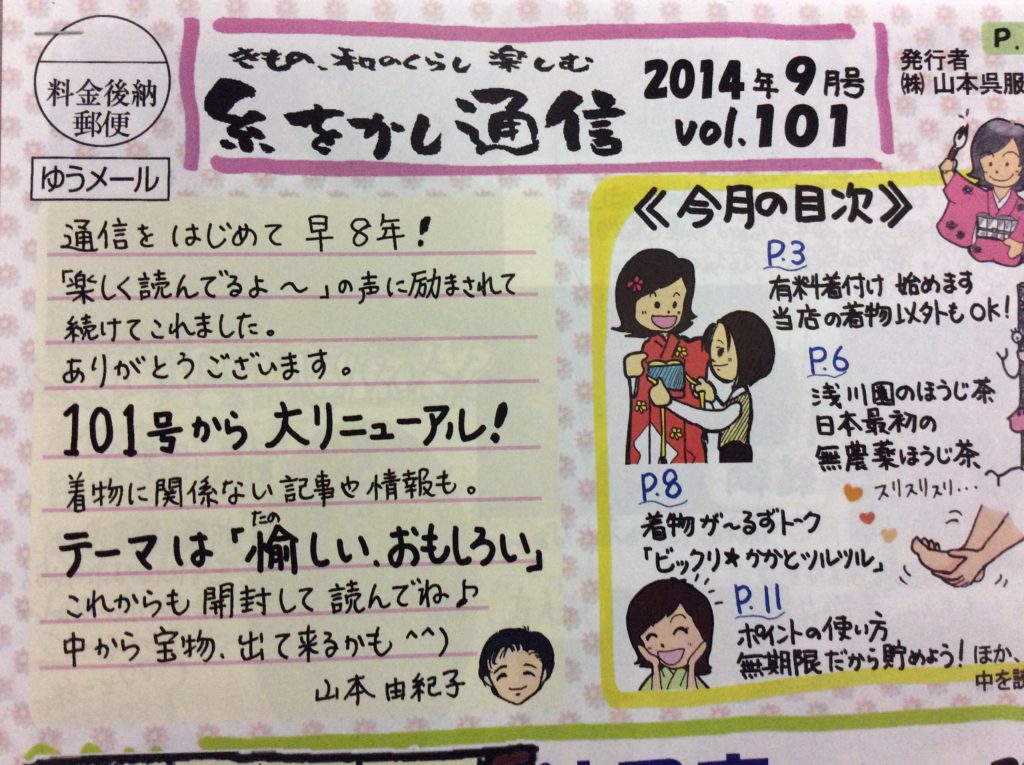 料金後納
郵便
ゆうメール
きもの、和のくらし 楽しむ
糸をかし通信
2014年9月号
vol.101
P.
発行者
㈱山本呉服
通信を はじめて 早 8年!
「楽しく読んでるよ〜」の声に励まされて
続けてこれました。
ありがとうございます。
101号から 大リニューアル!
着物に関係ない記事や情報も。
たの
テーマは「愉しい、おもしろい」
これからも 開封して 読んでね♪
中から宝物、出て来るかも ^^)
山本 由紀子
《今月の目次》
P.3
有料着付け 始めます
当店の着物以外もOK!
P.6
浅川園のほうじ茶
日本最初の
無農薬ほうじ茶
スリスリスリ…
P.8
着物が〜るずトーク
「ビックリ★かかとツルツル」
P.11
ポイントの使い方
無期限だから貯めよう!
ほか、
中を読